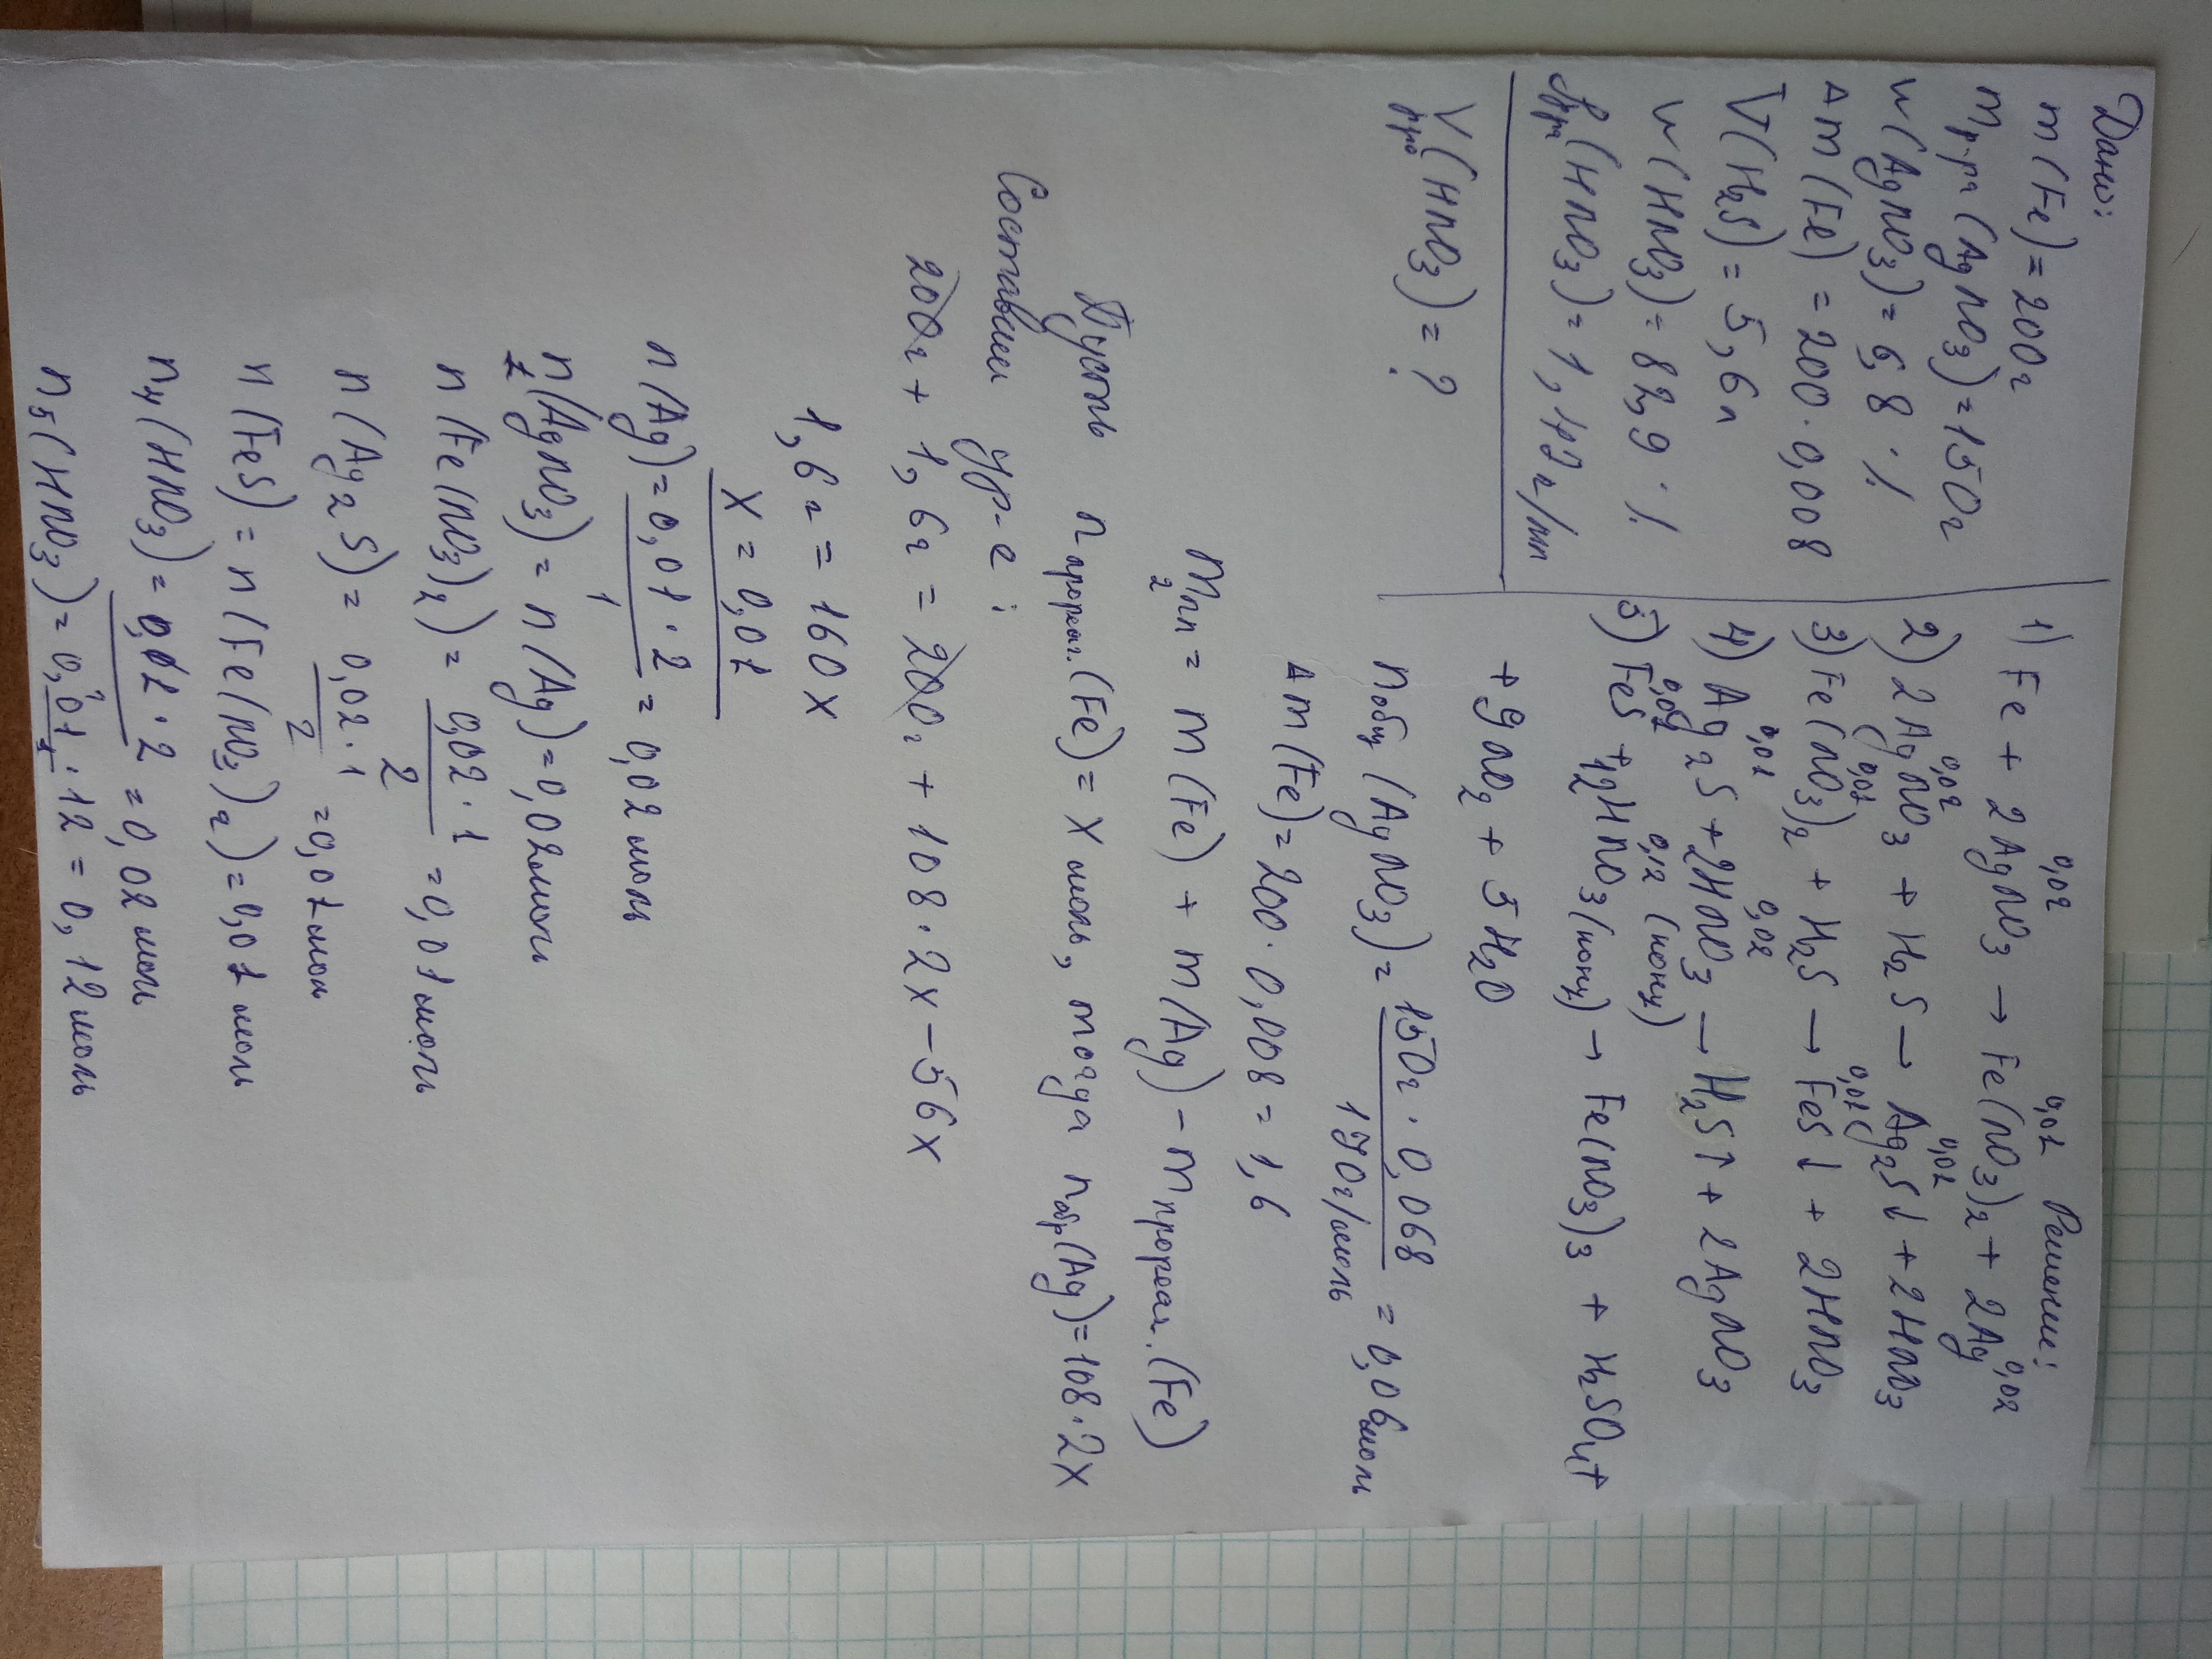 Дано:
m(Fe)=200г
m р-ра (AgNO3)=150г
w(AgNO3)=6,8%
Δm(Fe)=200·0,008
V(H2S)=5,6л
w(HNO3)=82,9%
ρ р-ра (HNO3)=1,42г/мл
V р-ра (HNO3)=?
Решение:
0,02 0,01 0,02
1) Fe + 2AgNO3 → Fe(NO3)2 + 2Ag
0,02 0,01
2) 2AgNO3 + H2S → Ag2S↓ + 2HNO3
0,01 0,01
3) Fe(NO3)2 + H2S → FeS↓ + 2HNO3
0,01 0,02
4) Ag2S + 2HNO3 → H2S↑ + 2AgNO3
0,01 0,12 (конц)
5) FeS + 12HNO3(конц) → Fe(NO3)3 + H2SO4 +
+ 9NO2 + 5H2O
n общ (AgNO3) = 150г · 0,068 / 170г/моль = 0,06моль
Δm(Fe)=200·0,008=1,6
m пл 2 = m(Fe) + m(Ag) - m прореаг.(Fe)
Пусть n прореаг.(Fe)=x моль, тогда n обр(Ag)=108·2x
Составим ур-е:
200г + 1,6г = 200г + 108·2x - 56x
1,6г = 160x
x = 0,01
n(Ag) = 0,01·2 / 1 = 0,02моль
n 1(AgNO3) = n(Ag) = 0,02моль
n(Fe(NO3)2) = 0,02·1 / 2 = 0,01моль
n(Ag2S) = 0,02·1 / 2 = 0,01мол
n(FeS) = n(Fe(NO3)2) = 0,01моль
n4(HNO3) = 0,01·2 = 0,02 моль
n5(HNO3) = 0,01·12 / 1 = 0,12 моль